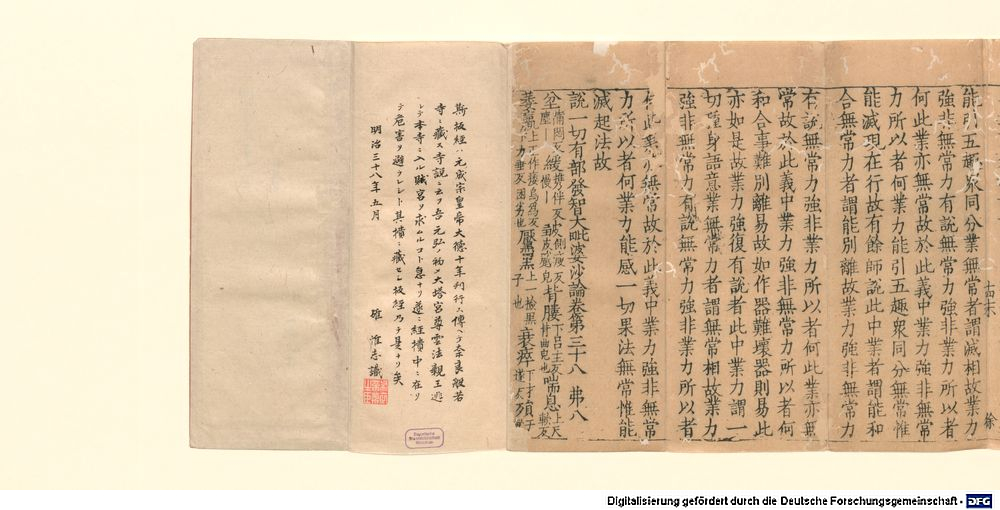 能引五趣眾同分業無常者謂滅相故業力
強非無常力有說無常力強非業力所以者
何此業亦無常故於此義中業力強非無常
力所以者何業力能引五趣眾同分無常惟
能滅現在行故有餘師說此中業者謂能和
合無常力者謂能別離故業力強非無常力
有說無常力強非業力所以者何此業亦無
常故於此義中業力強非無常力所以者何
和合事難別離易故如作器難壞器則易此
亦如是故業力強復有說者此中業力謂一
切種身語意業無常力者謂無常相故業力
強非無常力有說無常力強非業力所以者
何此業亦無常故於此義中業力強非無常
力所以者何業力能感一切果法無常惟能
滅起法故
說一切有部發智大毗婆沙論卷第三十八 弗八
斯板經ハ元成宗皇帝大德十年刊行ニ傳ヘテ奈良般若
寺ニ藏ス寺説ニ云フ吾元弘ノ初メ大塔宮尊雲法親王遁
レテ本寺ニ入ル賊宮ヲ求ムルコト急ナリ遂ニ經櫃中ニ在リ
テ危害ヲ避ケラレシト其櫃ニ藏セシ板經乃チ是ナリ矣
明治三十八年五月
確 惟志識
Bayerische
Staatsbibliothek
München
Digitalisierung gefördert durch die Deutsche Forschungsgemeinschaft - DFG